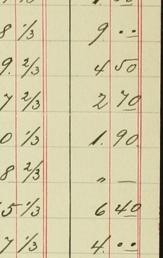 8 1/3 9 ..
9. 2/3 4 50
7 2/3 2 70
0 1/3 1. 90
8 2/3 " —
5 1/3 6 40
7 1/3 4. ..